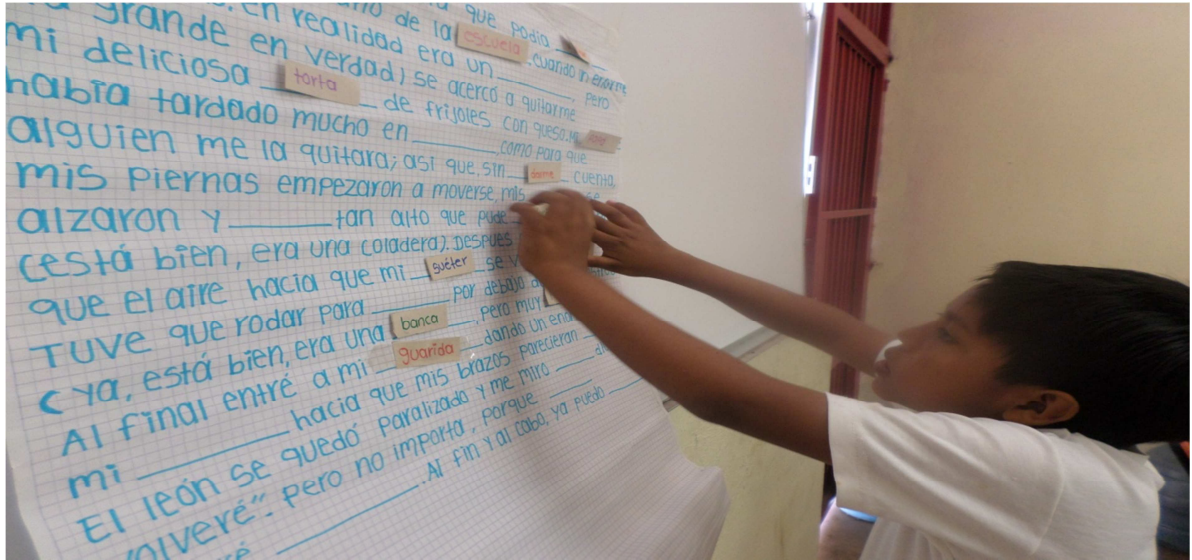 que podía
grande en realidad era un escuela, cuando
mi deliciosa en verdad) se acercó a quitarme pero
había tardado torta de frijoles con queso. Me
alguien me la quitara; así que sin como para que
mis piernas empezaron a moverse, mis darme cuenta
alzaron y ______ tan alto que pude
(está bien, era una coladera). Después
que el aire hacía que mi suéter se
Tuve que rodar para ______ por debajo
(ya, está bien, era una banca, pero muy
Al final entré a mi guarida dando un
mi ______ hacía que mis brazos parecieran
El león se quedó paralizado y me miró
volveré". pero no importa, porque
Al fin y al cabo, ya puedo